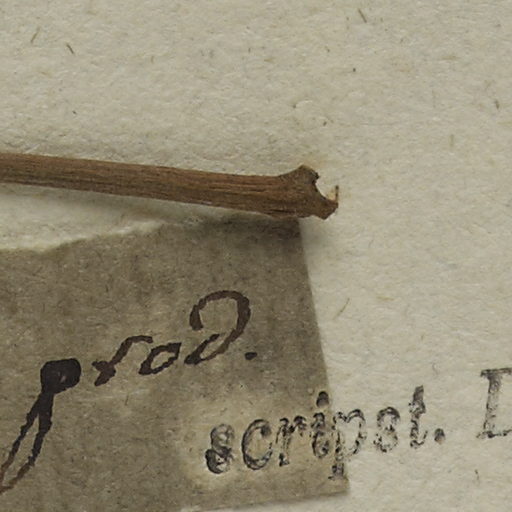 prod.
scripst. D